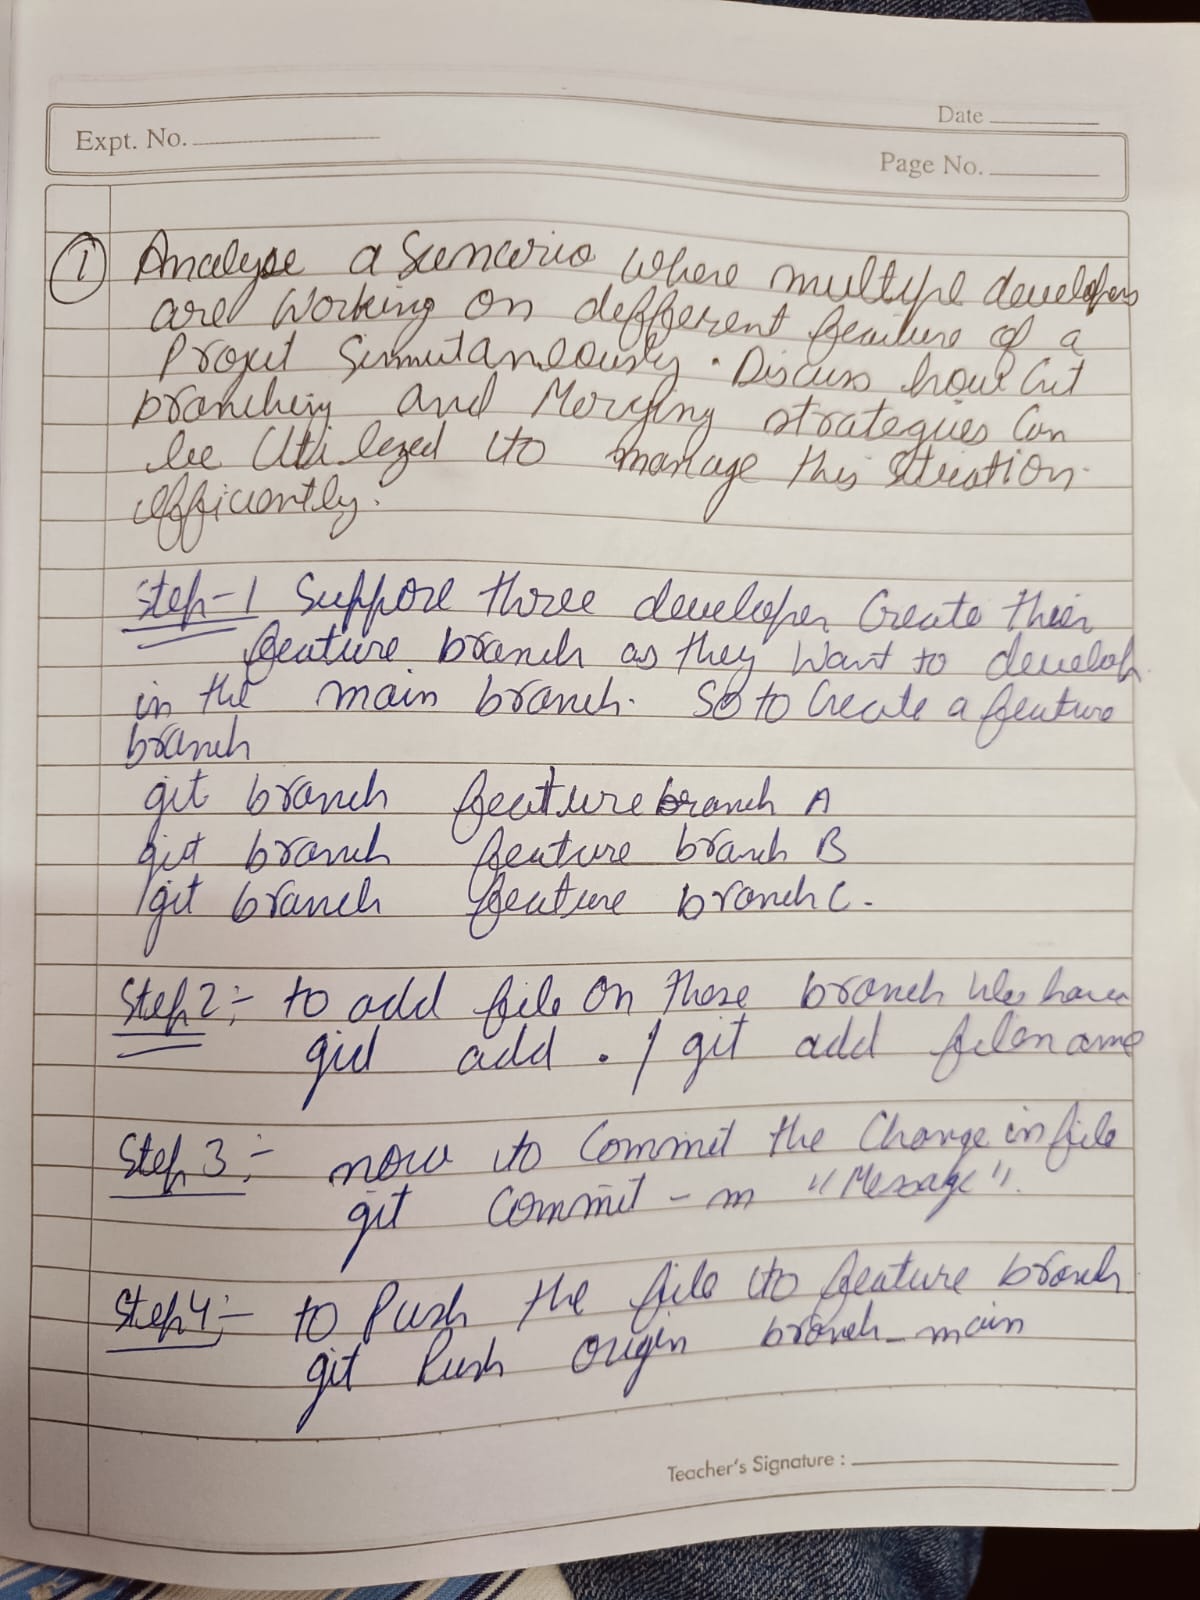 Date
Expt. No.
Page No.
1 Analyse a Scenario where multiple developers
are Working on defferent feature of a
Project Simmutaneously. Discuss how Git
branching and Merging strategies Can
be Utilized to manage this Situation
efficiently.
Step-1 Suppose three developer Create their
feature branch as they Want to develop
in the main branch. So to Create a feature
branch
git branch feature branch A
git branch feature branch B
git branch feature branch C.
Step 2:- to add file On these branch We have
gid add . / git add filename
Step 3:- now to Commit the Change in file
git Commit - m "Message".
Step 4:- to Push the file to feature branch
git Push origin branch_main
Teacher's Signature :